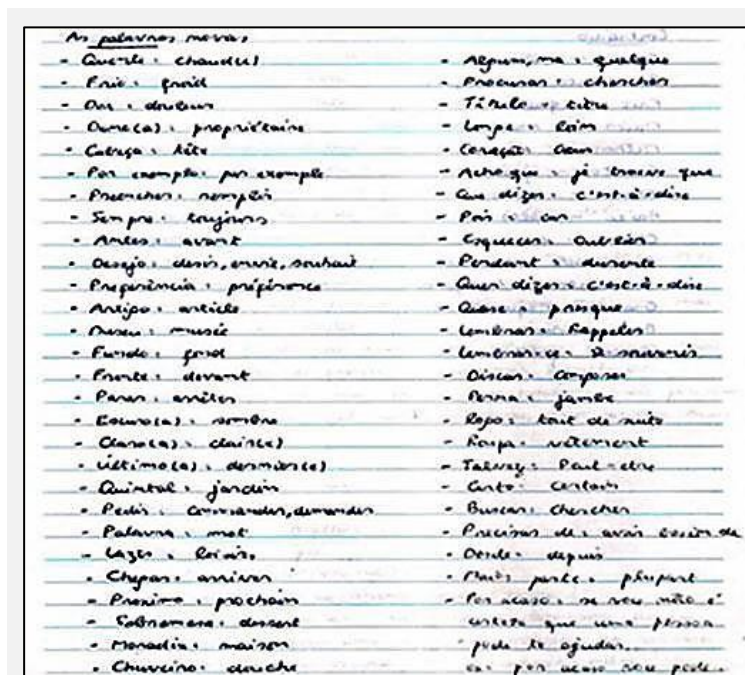 As palavras novas
- Quente: chaud(e)
- Frio: froid
- Dor: douleur
- Dono(a): propriétaire
- Cabeça: tête
- Por exemplo: par exemple
- Preencher: remplir
- Sempre: toujours
- Antes: avant
- Desejo: désir, envie, souhait
- Preferência: préférence
- Artigo: article
- Museu: musée
- Fundo: fond
- Frente: devant
- Parar: arrêter
- Escuro(a): sombre
- Claro(a): clair(e)
- Último(a): dernier(e)
- Quintal: jardin
- Pedir: commander, demander
- Palavra: mot
- Lazer: loisir
- Chegar: arriver
- Proximo: prochain
- Sobremesa: dessert
- Moradia: maison
- Chuveiro: douche
- Algum, ma: quelque
- Procurar: chercher
- Título: titre
- Longe: loin
- Coração:
- Acho que: je trouve que
- Que dizer: c'est-à-dire
- Pois: car
- Esquecer: oublier
- Pendant: durante
- Quer dizer: c'est-à-dire
- Quase: presque
- Lembrar: Rappeler
- Lembrar-se: se souvenir
- Discar: composer
- Perna: jambe
- Logo: tout de suite
- Roupa: vêtement
- Talvez: Peut-etre
- Certo: certain
- Buscar: chercher
- Precisar de: avoir besoin de
- Desde: depuis
- parte: plupart
- Por acaso: se você não é
certeza que uma pessoa
pode te ajudar.
por acaso você pode..